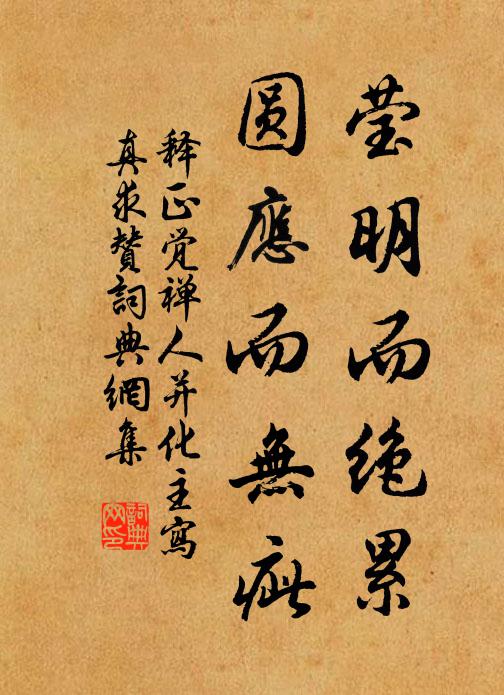 莹明而绝累
圆應而無疵
释正觉禅人并化主寫
真求赞詞典網集
詞典网印